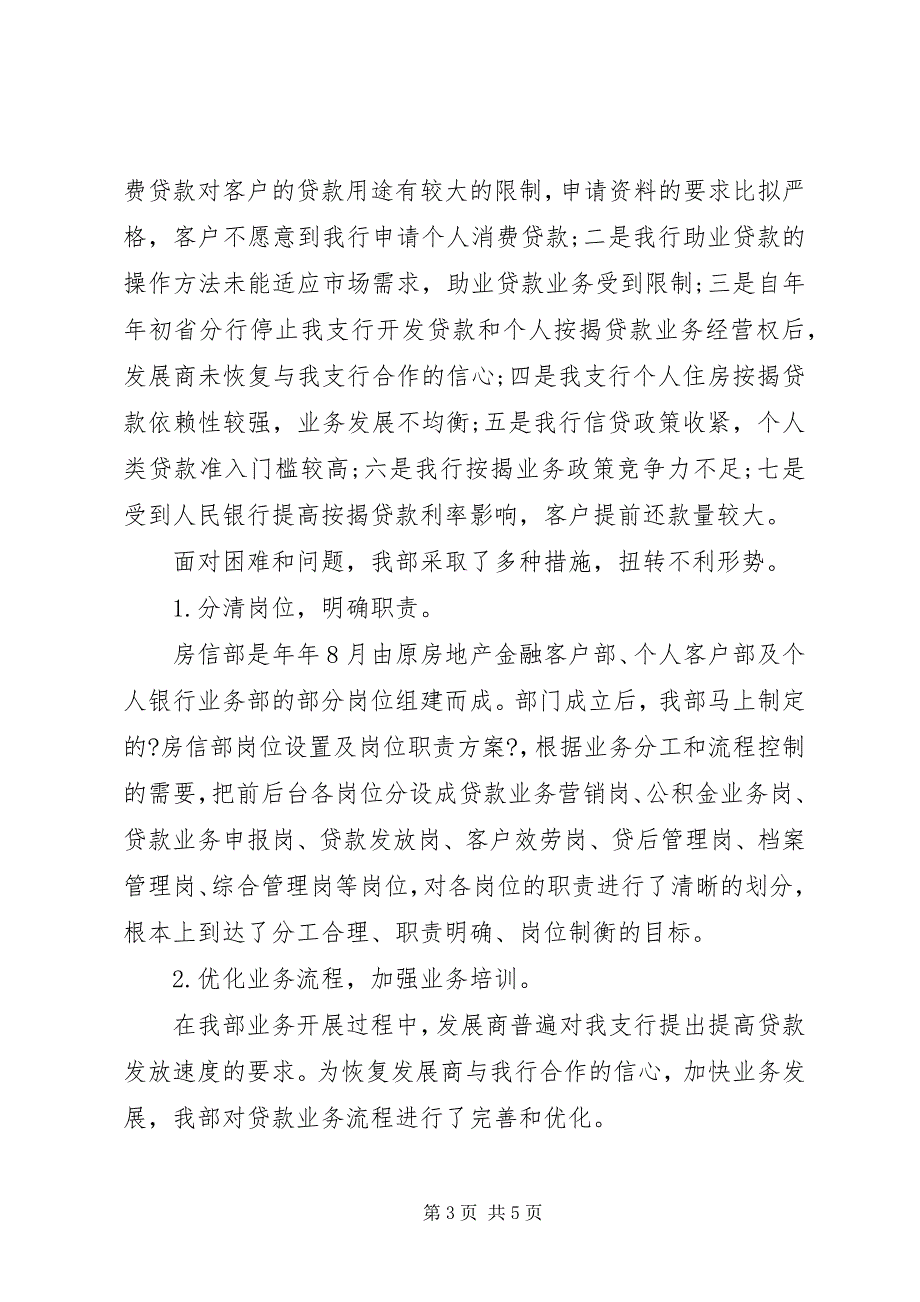 费贷款对客户的贷款用途有较大的限制，申请资料的要求比拟严
格，客户不愿意到我行申请个人消费贷款;二是我行助业贷款的
操作方法未能适应市场需求，助业贷款业务受到限制;三是自年
年初省分行停止我支行开发贷款和个人按揭贷款业务经营权后，
发展商未恢复与我支行合作的信心;四是我支行个人住房按揭贷
款依赖性较强，业务发展不均衡;五是我行信贷政策收紧，个人
类贷款准入门槛较高;六是我行按揭业务政策竞争力不足;七是
受到人民银行提高按揭贷款利率影响，客户提前还款量较大。
面对困难和问题，我部采取了多种措施，扭转不利形势。
1.分清岗位，明确职责。
房信部是年年 8 月由原房地产金融客户部、个人客户部及个
人银行业务部的部分岗位组建而成。部门成立后，我部马上制定
的?房信部岗位设置及岗位职责方案?，根据业务分工和流程控制
的需要，把前后台各岗位分设成贷款业务营销岗、公积金业务岗、
贷款业务申报岗、贷款发放岗、客户效劳岗、贷后管理岗、档案
管理岗、综合管理岗等岗位，对各岗位的职责进行了清晰的划分，
根本上到达了分工合理、职责明确、岗位制衡的目标。
2.优化业务流程，加强业务培训。
在我部业务开展过程中，发展商普遍对我支行提出提高贷款
发放速度的要求。为恢复发展商与我行合作的信心，加快业务发
展，我部对贷款业务流程进行了完善和优化。
第 3 页 共 5 页